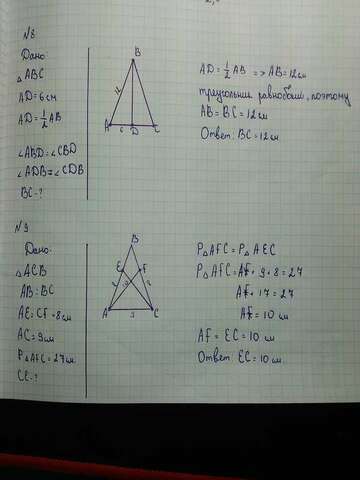 N8
Дано:
△ABC
AD=6см
AD=1/2AB
∠ABD=∠CBD
∠ADB=∠CDB
BC-?
B
12
A
6
D
C
AD=1/2AB => AB=12см
треугольник равнобедр., поэтому
AB=BC=12см
Ответ: BC=12см
N9
Дано:
△ACB
AB=BC
AE=CF=8см
AC=9см
P△AFC=27см
CE-?
B
E
F
A
9
C
P△AFC=P△AEC
P△AFC=AF+9+8=27
AF+17=27
AF=10см
AF=EC=10см
Ответ EC=10см